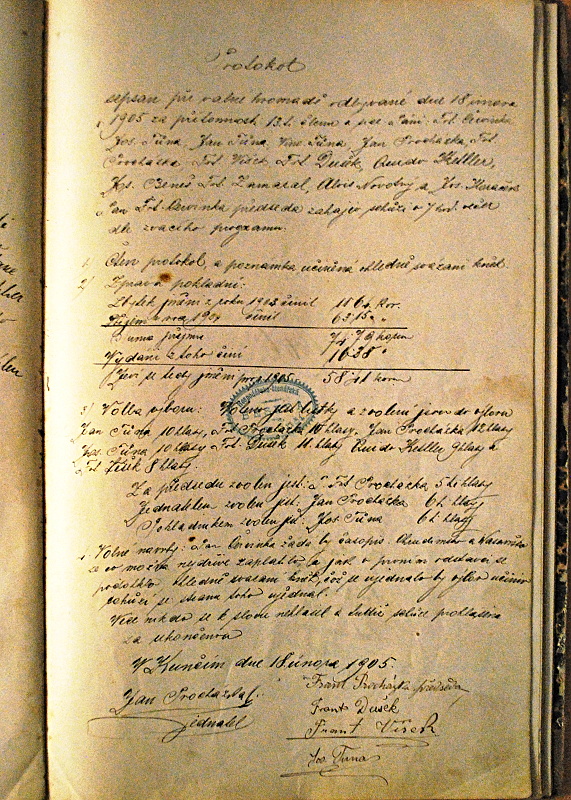 Protokol
sepsán při valné hromadě odbývané dne 18 února
1905 za přítomnosti 13ti členů a sice Páni: Fr. Červinka
Jos. Tůna, Jan Tůna, Vinc. Tůna, Jan Procházka, Frt.
Procházka Frt. Víšek, Frt. Dušek, Kettler,
Jos. Beneš Frt. Zamazal, Alois Novotny a Jos.
Pan Frt. Červinka předseda zahájev schůzi o 7 hod. večer
dle zvacího programu.
1) Čten protokol, a poznámka učiněná ohledně svázaní knih.
2) Zpráva pokladní:
Zbytek jmění z roku 1903 činil 11 64 Kor.
Příjem v roce 1904 činil 63 15 "
Suma příjmu 74 79 korun
Vydání z toho činí 16 38 "
Jeví se tedy jmění pro 1905 58 41 korun
3) Volba výboru: Voleno lístky a zvoleni jsou do výboru
Jan Tůna 10 hlasy, Frt. Procházka 10 hlasy, Jan Procházka 12 hlasy
Jos. Tůna 10 hlasy Frt. Dušek 11 hlasy Kettler 9 hlasy a
Frt. Víšek 8 hlasy.
Za předsedu zvolen jest: P. Frt Procházka, 5ti hlasy
Jednatelem zvolen jest: Jan Procházka 6ti hlasy
Pokladníkem zvolen jest: Jos. Tůna 6ti hlasy
4. Volné návrhy: Pan Červinka žádá by časopis a
se co možná nejdříve zaplatilo a jak v prvním odstavci se
podotklo ohledně svázaní knih, což se ujednalo by výbor učinil
se strana toho ujednal.
Více nikdo se k slovu nehlásil a tudíž schůze prohlášena
za ukončenou
V Kunčím dne 18 února 1905.
Jan Procházka
jednatel
Frant Procházka předseda
Frant Dušek
Frant Víšek
Jos. Tůna